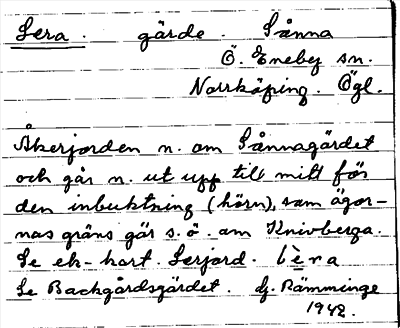 Lera. gärde. Sånna
Ö. Eneby sn.
Norrköping. Ögl.
Åkerjorden n. om Sånnagärdet
och går n. ut upp till mitt för
den inbuktning (hörn), som ägor-
nas gräns gör s. ö. om Knivberga.
Se ek-kart. Lerjord. lèra
Se Backgårdsgärdet. Hj. Rämminge
1942.